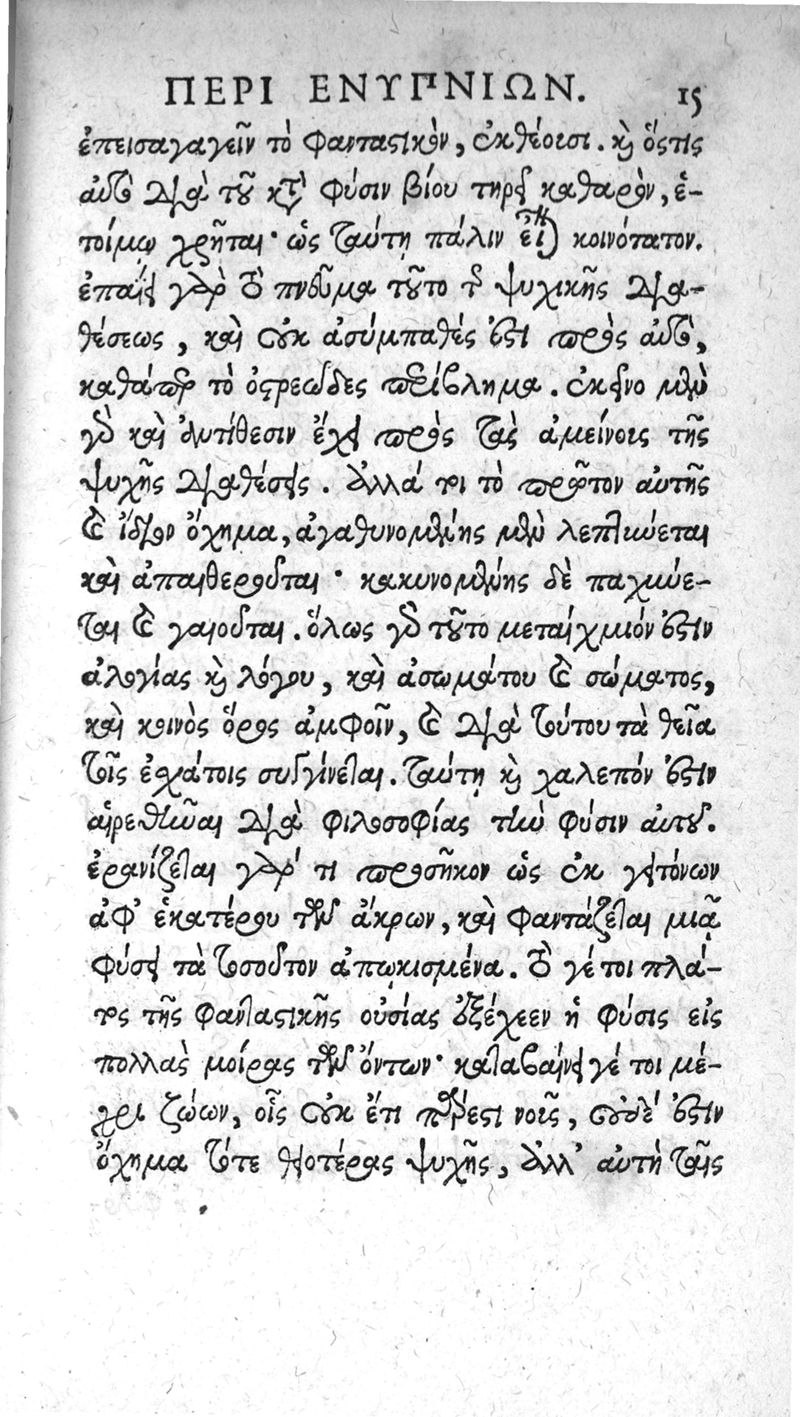 ΠΕΡΙ ΕΝΥΠΝΙΩΝ. 15
ἐπεισαγαγεῖν τὸ φανταστικὸν, ἐκθέουσι. καὶ ὅστις
αὐτὸ διὰ τοῦ κατὰ φύσιν βίου τηρεῖ καθαρὸν, ἑ-
τοίμῳ χρῆται· ὡς ταύτῃ πάλιν εἶναι κοινότατον.
ἐπαΐει γὰρ τὸ πνεῦμα τοῦτο τῆς ψυχικῆς δια-
θέσεως, καὶ οὐκ ἀσύμπαθές ἐστι πρὸς αὐτὸ,
καθάπερ τὸ ὀστρεῶδες περίβλημα. ἐκεῖνο μὲν
γὰρ καὶ ἀντίθεσιν ἔχει πρὸς τὰς ἀμείνους τῆς
ψυχῆς διαθέσεις. ἀλλά τοι τὸ πρῶτον αὐτῆς
καὶ ἴδιον ὄχημα, ἀγαθυνομένης μὲν λεπτύνεται
καὶ ἀπαιθεροῦται· κακυνομένης δὲ παχύνε-
ται καὶ γαιοῦται. ὅλως γὰρ τοῦτο μεταίχμιόν ἐστιν
ἀλογίας καὶ λόγου, καὶ ἀσωμάτου καὶ σώματος,
καὶ κοινὸς ὅρος ἀμφοῖν, καὶ διὰ τούτου τὰ θεῖα
τοῖς ἐσχάτοις συγγίνεται. ταύτῃ καὶ χαλεπόν ἐστιν
αἱρεθῆναι διὰ φιλοσοφίας τὴν φύσιν αὐτοῦ.
ἐρανίζεται γὰρ τι προσῆκον ὡς ἐκ γειτόνων
ἀφ' ἑκατέρου τῶν ἄκρων, καὶ φαντάζεται μιᾷ
φύσει τὰ τοσοῦτον ἀπῳκισμένα. τὸ γέ τοι πλά-
τος τῆς φανταστικῆς οὐσίας ἐξέχεεν ἡ φύσις εἰς
πολλὰς μοίρας τῶν ὄντων· καταβαίνει γέ τοι μέ-
χρι ζώων, οἷς οὐκ ἔτι πάρεστι νοῦς, οὐδέ ἐστιν
ὄχημα τότε θειοτέρας ψυχῆς, ἀλλ' αὐτὴ ταῖς